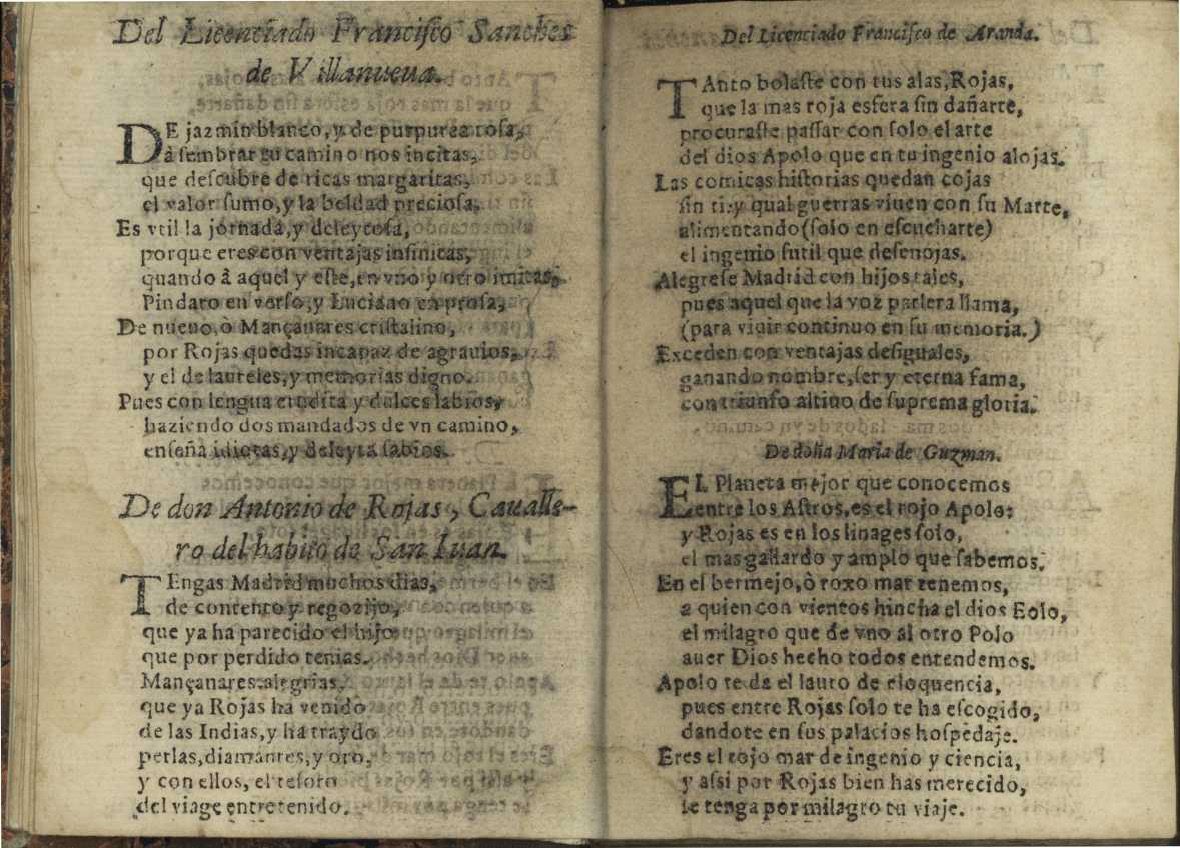 Del Licenciado Franciſco Sanchez
de Villanueua.
DE jazmin blanco, y de purpurea roſa,
à ſembrar tu camino nos incitas,
que deſcubre de ricas margaritas,
el valor ſumo, y la beldad precioſa,
Es vtil la jornada, y deleytoſa,
porque eres con ventajas infinitas,
quando à aquel y eſte, en vno y otro imitas,
Pindaro en verſo, y Luciano en proſa,
De nueuo, ò Mançanares criſtalino,
por Rojas quedas incapaz de agrauios,
y el de laureles, y memorias digno.
Pues con lengua erudita y dulces labios,
haziendo dos mandados de vn camino,
enſeña idiotas, y deleyta ſabios.
De don Antonio de Rojas, Cauallе-
ro del habito de San Iuan.
TEngas Madrid muchos dias,
de contento y regozijo,
que ya ha parecido el hijo
que por perdido tenias.
Mançanares alegrias,
que ya Rojas ha venido
de las Indias, y ha traydo
perlas, diamantes, y oro,
y con ellos, el teſoro
del viage entretenido.
Del Licenciado Franciſco de Aranda.
TAnto bolaſte con tus alas, Rojas,
que la mas roja esfera ſin dañarte,
procuraſte paſſar con ſolo el arte
del dios Apolo que en tu ingenio alojas.
Las comicas hiſtorias quedan cojas
ſin ti: y qual guerras viuen con ſu Marte,
alimentando (ſolo en eſcucharte)
el ingenio ſutil que deſenojas.
Alegreſe Madrid con hijos tales,
pues aquel que la voz parlera llama,
(para viuir continuo en ſu memoria.)
Exceden con ventajas deſiguales,
ganando nombre, ſer y eterna fama,
con triunfo altiuo de ſuprema gloria.
De doña Maria de Guzman.
EL Planeta mejor que conocemos
entre los Aſtros, es el rojo Apolo:
y Rojas es en los linages ſolo,
el mas gallardo y amplo que ſabemos.
En el bermejo, ò roxo mar tenemos,
a quien con vientos hincha el dios Eolo,
el milagro que de vno al otro Polo
auer Dios hecho todos entendemos.
Apolo te da el lauro de eloquencia,
pues entre Rojas ſolo te ha eſcogido,
dandote en ſus palacios hoſpedaje.
Eres el rojo mar de ingenio y ciencia,
y aſsi por Rojas bien has merecido,
ſe tenga por milagro tu viaje.